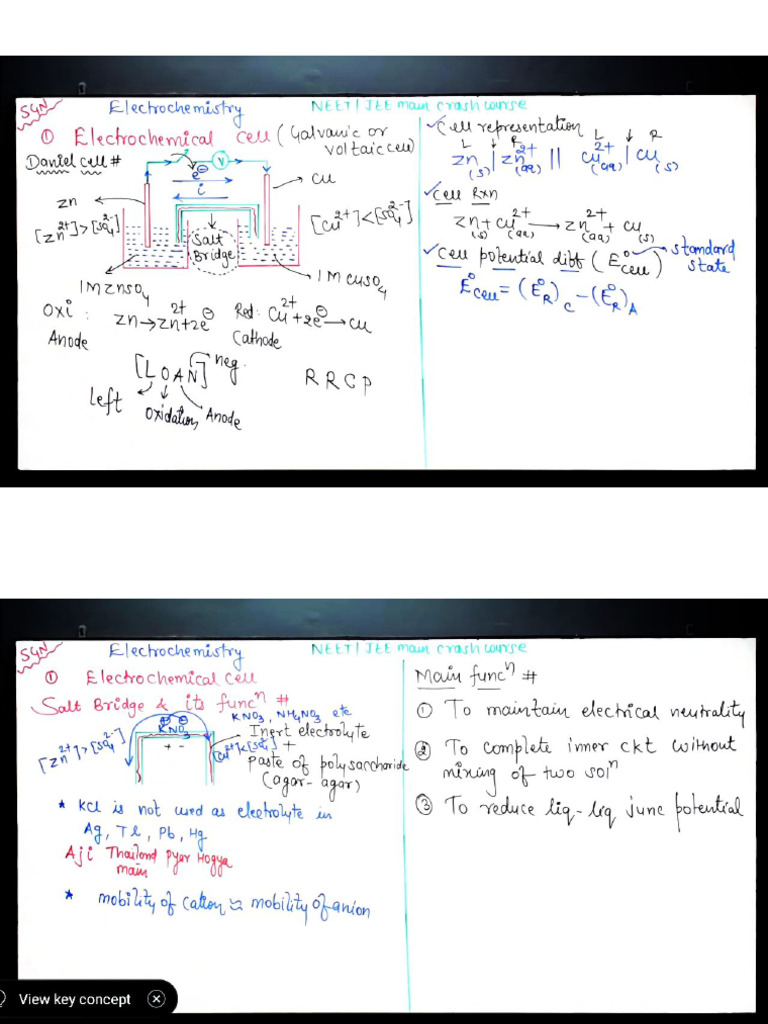 SGN
Electrochemistry
NEET | JEE main crash course
① Electrochemical cell (Galvanic or voltaic cell)
Daniel cell #
V
e⊖
i
Zn
Cu
[Zn²⁺] > [SO₄²⁻]
[Cu²⁺] < [SO₄²⁻]
Salt Bridge
1M ZnSO₄
1M CuSO₄
Oxi : Zn → Zn²⁺ + 2e⊖
Anode
Red: Cu²⁺ + 2e⊖ → Cu
Cathode
[LOAN] neg.
Left
Oxidation
Anode
R R C P
✓ Cell representation
L R L R
Zn(s) | Zn²⁺(aq) || Cu²⁺(aq) | Cu(s)
✓ Cell Rxn
Zn(s) + Cu²⁺(aq) → Zn²⁺(aq) + Cu(s)
✓ Cell potential diff (E°cell) → standard state
E°cell = (E°R)C − (E°R)A
SGN
Electrochemistry
NEET | JEE main crash course
① Electrochemical cell
Salt Bridge & its funcⁿ #
KNO₃, NH₄NO₃ etc
Inert electrolyte
+
paste of polysaccharide
(agar-agar)
⊕ ⊖
KNO₃
+ -
[Zn²⁺] > [SO₄²⁻]
[Cu²⁺] < [SO₄²⁻]
* KCl is not used as electrolyte in
Ag, Tl, Pb, Hg
Aji Thailand Pyar Hogya
main
* mobility of cation ≈ mobility of anion
Main funcⁿ #
① To maintain electrical neutrality
② To complete inner ckt without
mixing of two solⁿ
③ To reduce liq-liq junc potential
View key concept